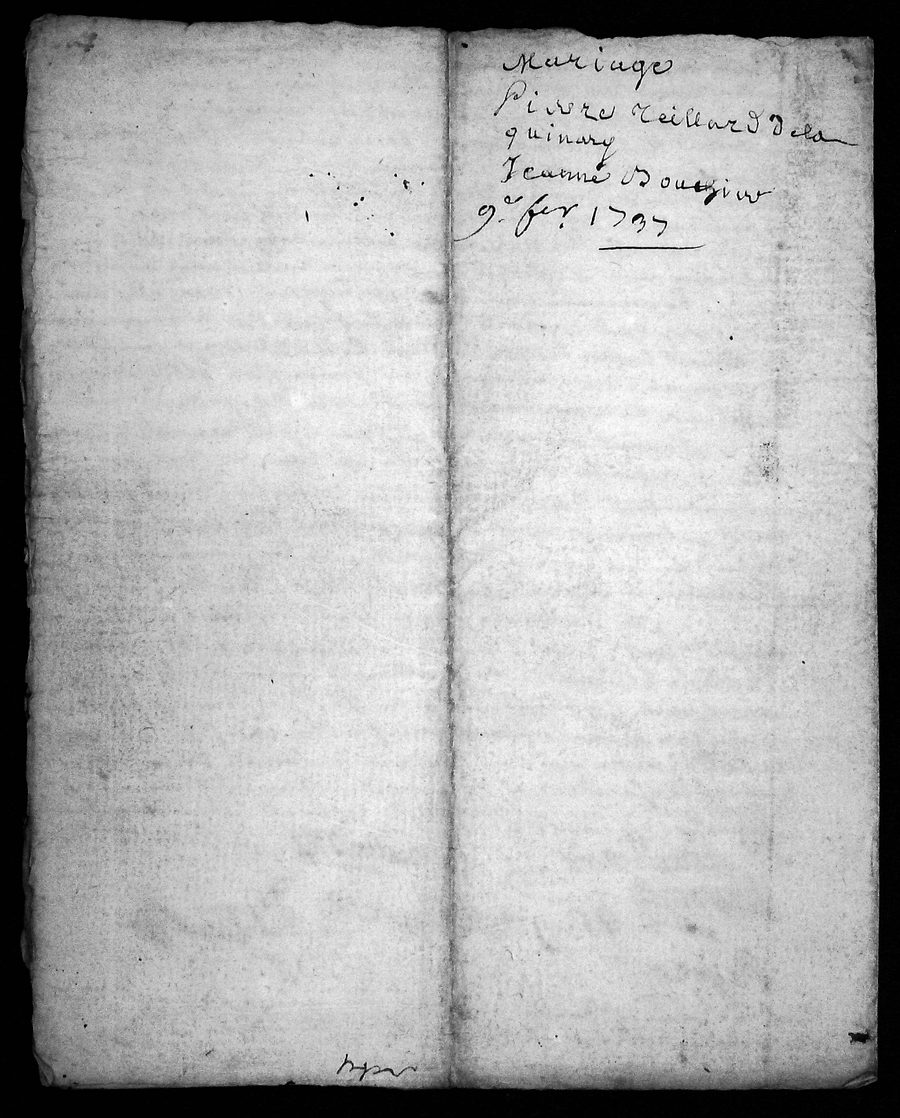 Mariage
Pierre Teillard dela
quinary
Jeanne
9e fer. 1737